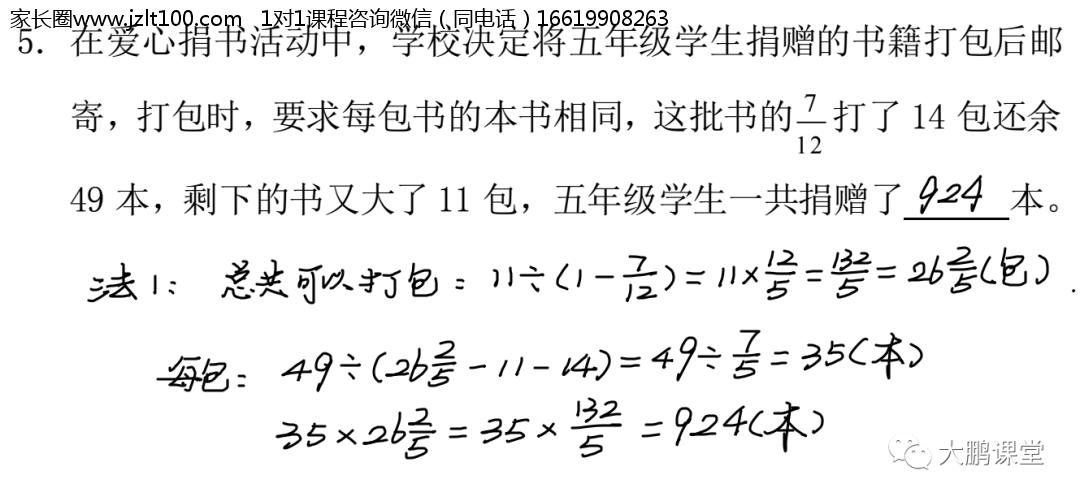 家长圈www.jzlt100.com 1对1课程咨询微信（同电话）16619908263
5. 在爱心捐书活动中，学校决定将五年级学生捐赠的书籍打包后邮
寄，打包时，要求每包书的本书相同，这批书的7/12打了 14 包还余
49 本，剩下的书又大了 11 包，五年级学生一共捐赠了 924 本。
法1： 总共可以打包：11÷(1-7/12)=11×12/5=132/5=26 2/5(包).
每包：49÷(26 2/5-11-14)=49÷7/5=35(本)
35×26 2/5=35×132/5=924(本)
大鹏课堂